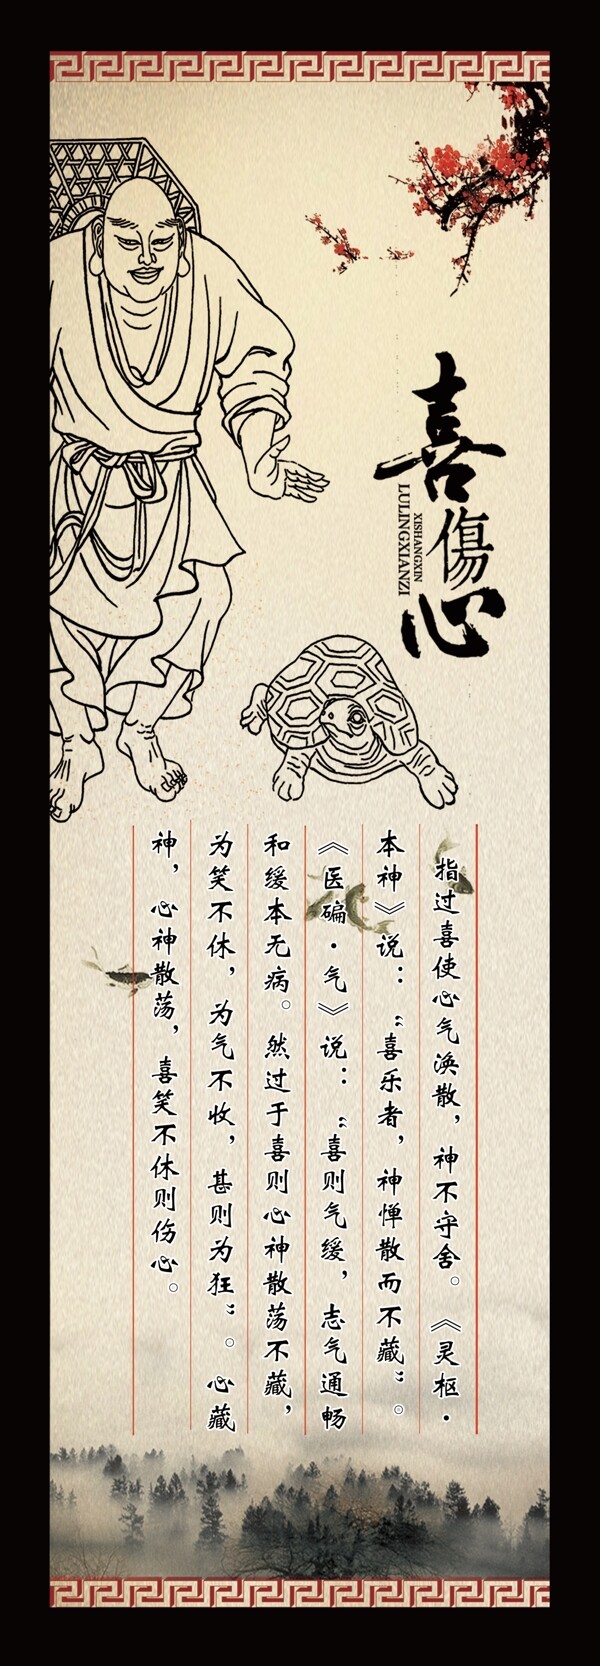 喜傷心
XISHANGXIN
LULINGXIANZI
指过喜使心气涣散，神不守舍。《灵枢·
本神》说：“喜乐者，神惮散而不藏”。
《医碥·气》说：“喜则气缓，志气通畅
和缓本无病。然过于喜则心神散荡不藏，
为笑不休，为气不收，甚则为狂”。心藏
神，心神散荡，喜笑不休则伤心。